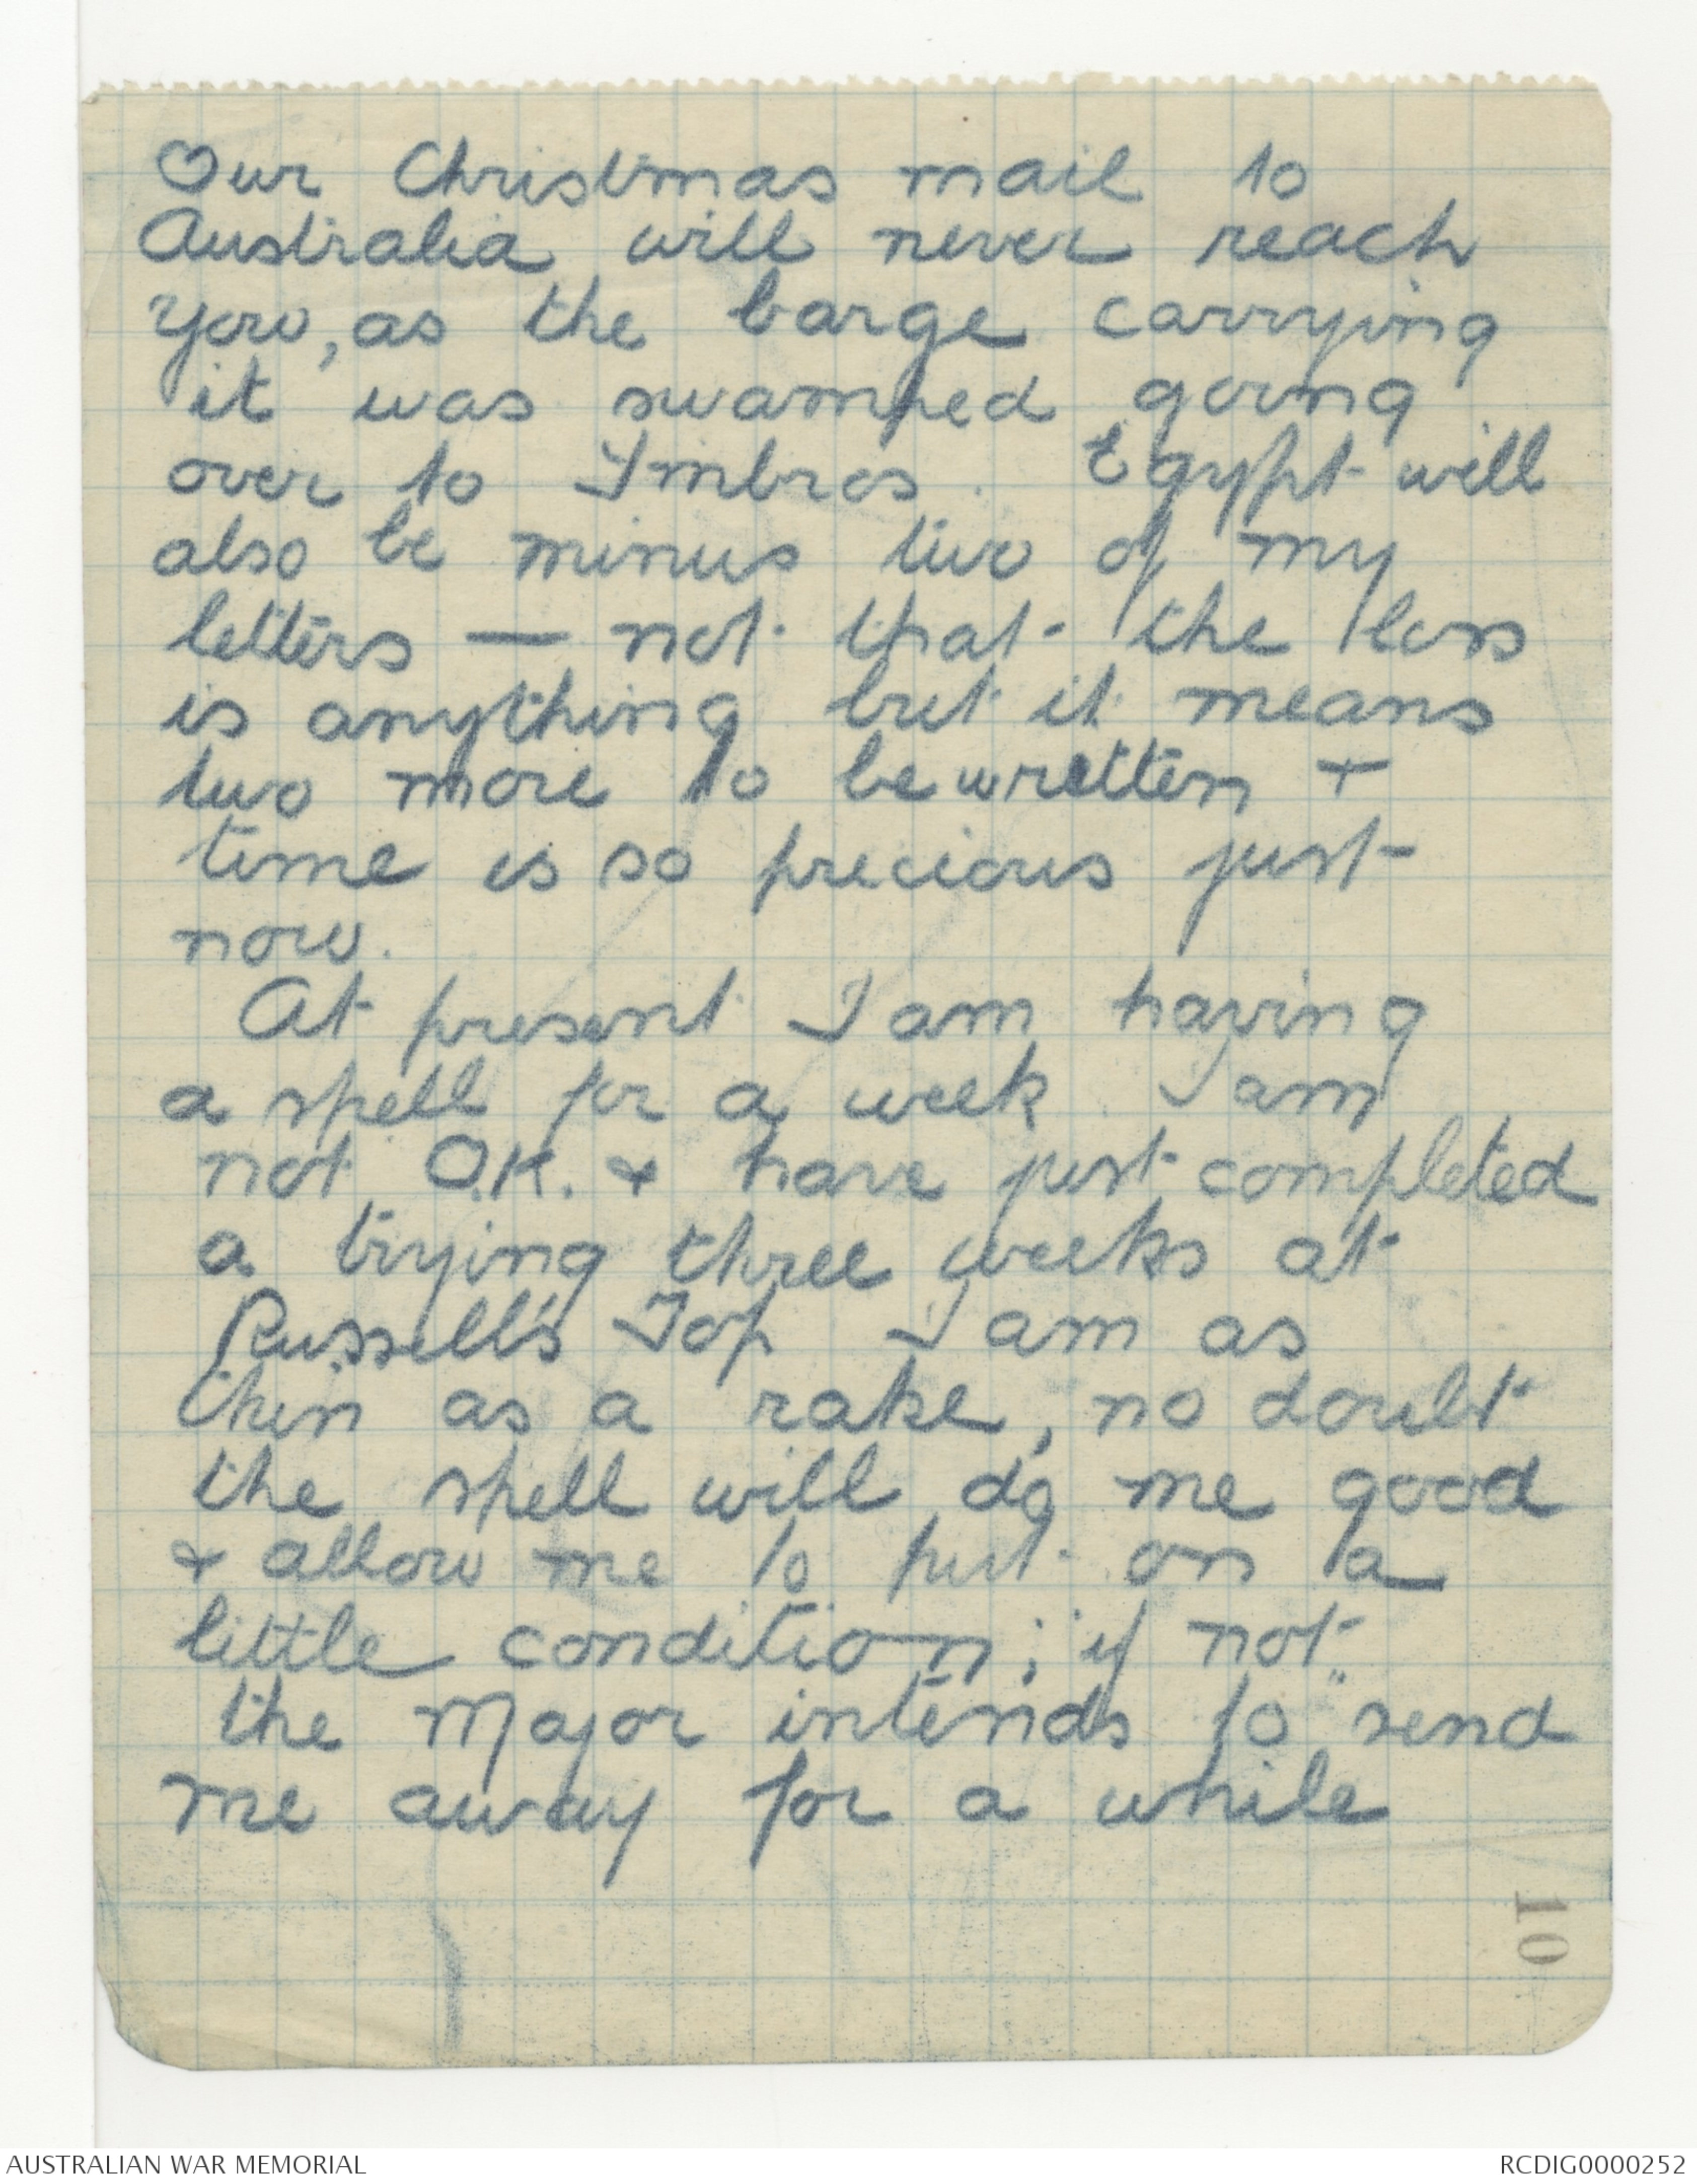 Our Christmas mail to
Australia will never reach
you, as the barge carrying
it was swamped going
over to Imbros. Egypt will
also be minus two of my
letters — not that the loss
is anything but it means
two more to be written +
time is so precious just
now.
At present I am having
a spell for a week. I am
not O.K. & have just completed
a trying three weeks at
Russell's Top I am as
thin as a rake, no doubt
the spell will do me good
& allow me to put on a
little condition; if not
the Major intends to send
me away for a while
10
AUSTRALIAN WAR MEMORIAL
RCDIG0000252